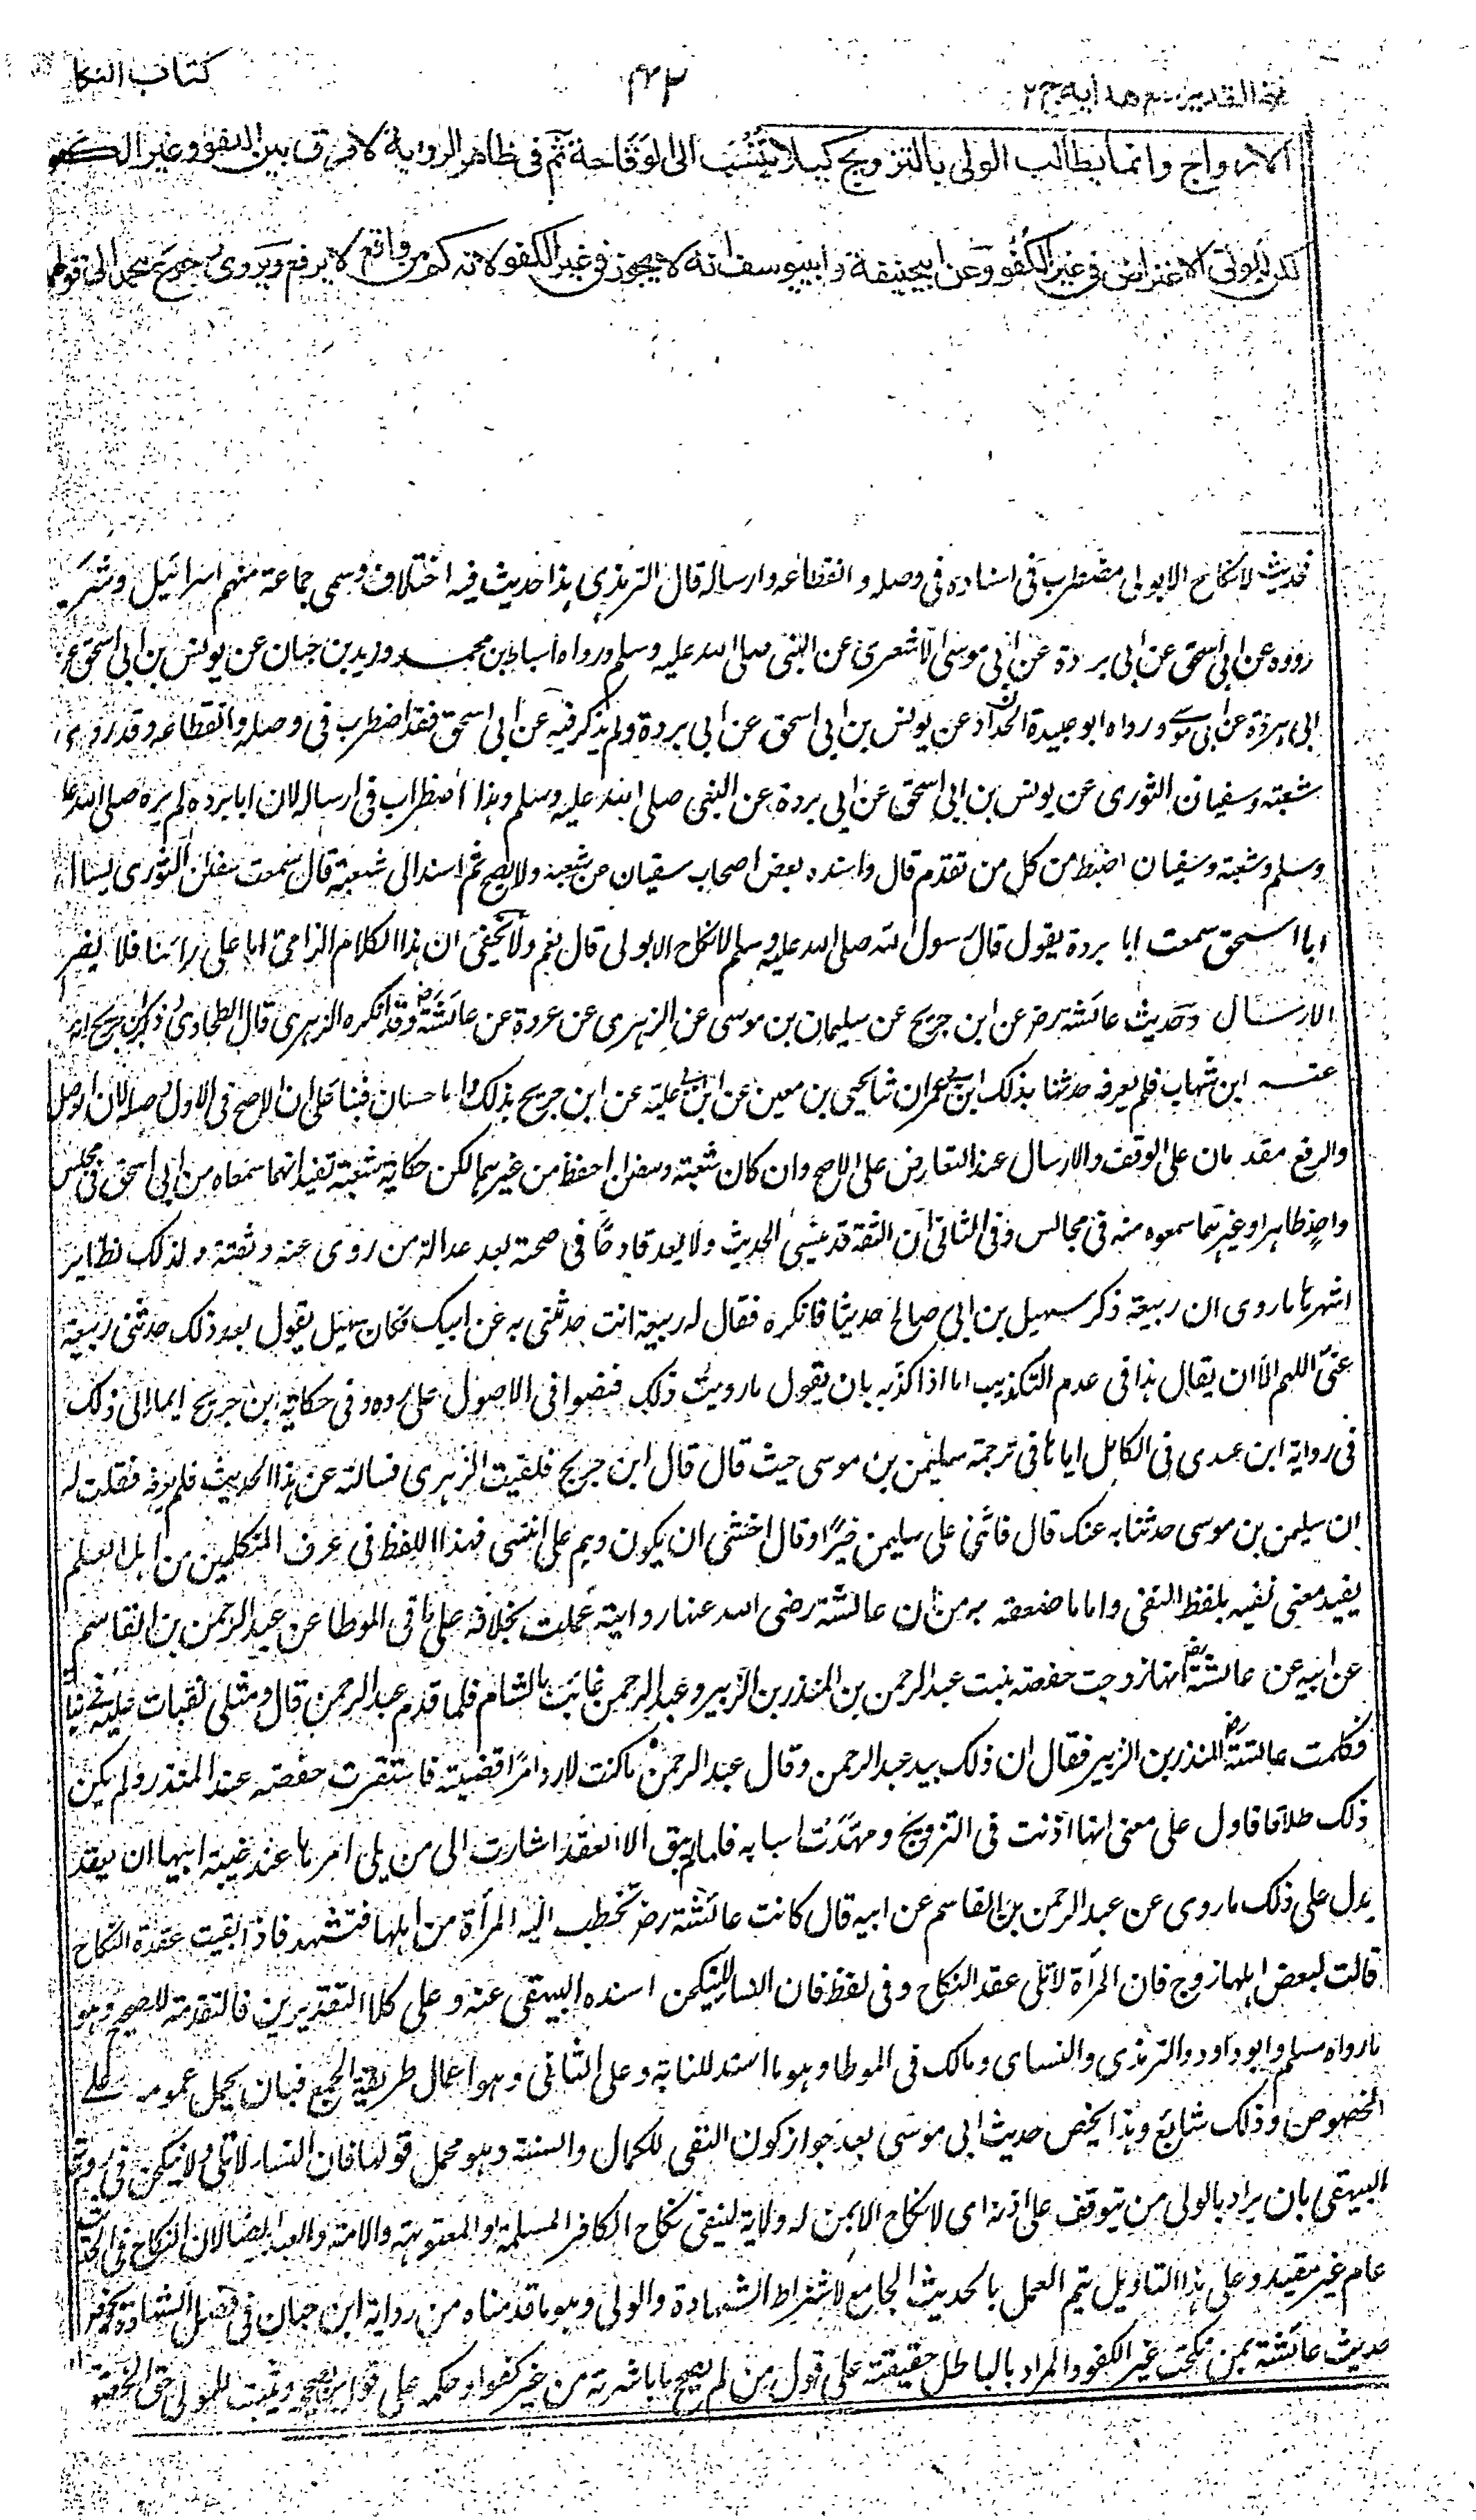 فتح القدیر مع هدایه ج ۲
۴۳
کتاب النکا
الازواج وانما یطالب الولی بالتزویج کیلا تنسب الی الوقاحة ثم فی ظاهر الروایة لا فرق بین الکفو وغیر الکفو
لکن للولی الاعتراض فی غیر الکفو وعن ابیحنیفة وابییوسف انه لا یجوز فی غیر الکفو لانه کم من واقع لا یرفع ویروی رجوع محمد الی قولهما
فحدیث لا نکاح الا بولی مضطرب فی اسناده فی وصله وانقطاعه وارساله قال الترمذی هذا حدیث فیه اختلاف وسمی جماعة منهم اسرائیل وشریک
رووه عن ابی اسحق عن ابی بردة عن ابی موسی الاشعری عن النبی صلی الله علیه وسلم ورواه اسباط بن محمد وزید بن حبان عن یونس بن ابی اسحق عن
ابی بردة عن ابی موسی ورواه ابو عبیدة الحداد عن یونس بن ابی اسحق عن ابی بردة ولم یذکر فیه عن ابی اسحق فقد اضطرب فی وصله وانقطاعه وقد روی
شعبة وسفیان الثوری عن یونس بن ابی اسحق عن ابی بردة عن النبی صلی الله علیه وسلم وهذا اضطراب فی ارساله لان ابا بردة لم یره صلی الله علیه
وسلم وشعبة وسفیان اضبط من کل من تقدم قال واسنده بعض اصحاب سفیان عن شعبة ولا یصح ثم اسند الی شعبة قال سمعت سفین الثوری یسال
ابا اسحق سمعت ابا بردة یقول قال رسول الله صلی الله علیه وسلم لا نکاح الا بولی قال نعم ولا یخفی ان هذا الکلام الزامی اما علی راینا فلا یضر
الارسال وحدیث عائشة رض عن ابن جریج عن سلیمان بن موسی عن الزهری عن عروة عن عائشة رض وقد انکره الزهری قال الطحاوی ذکر ابن جریج انه سال
عنه ابن شهاب فلم یعرفه حدثنا بذلک ابن ابی عمران ثنا یحیی بن معین عن ابن علیة عن ابن جریج بذلک واما حسنان فبناء علی ان الاصح فی الاول وصله لان الوصل
والرفع مقدمان علی الوقف والارسال عند التعارض علی الاصح وان کان شعبة وسفین احفظ من غیرهما لکن حکایة شعبة تفید انهما سمعاه من ابی اسحق فی مجلس
واحد ظاهرا وغیرهما سمعوه منه فی مجالس وفی الثانی ان الثقة قد ینسی الحدیث ولا یعد قادحا فی صحته بعد عدالة من روی عنه وثقته ولذلک نظایر
اشهرها ما روی ان ربیعة ذکر سهیل بن ابی صالح حدیثا فانکره فقال له ربیعة انت حدثتنی به عن ابیک فکان سهیل یقول بعد ذلک حدثنی ربیعة
عنی اللهم الا ان یقال هذا فی عدم التکذیب اما اذا کذبه بان یقول ما رویت ذلک فنصوا فی الاصول علی رده وفی حکایة ابن جریج ایما الی ذلک
فی روایة ابن عدی فی الکامل ایاها فی ترجمة سلیمن بن موسی حیث قال قال ابن جریج فلقیت الزهری فسالته عن هذا الحدیث فلم یعرفه فقلت له
ان سلیمن بن موسی حدثنا به عنک قال فاثنی علی سلیمن خیرا وقال اخشی ان یکون وهم علی انتهی فهذا اللفظ فی عرف المتکلمین من اهل العلم
یفید معنی نفیه بلفظ النفی واما ما ضعفه به من ان عائشة رضی الله عنها روایته عملت بخلافه علی ما فی الموطا عن عبد الرحمن بن القاسم
عن ابیه عن عائشة رض انها زوجت حفصة بنت عبد الرحمن بن المنذر بن الزبیر وعبد الرحمن غائب بالشام فلما قدم عبد الرحمن قال ومثلی یفتات علیه فی بناته
فکلمت عائشة رض المنذر بن الزبیر فقال ان ذلک بید عبد الرحمن وقال عبد الرحمن ما کنت لارد امرا قضیته فاستقرت حفصة عند المنذر ولم یکن
ذلک طلاقا فاول علی معنی انها اذنت فی التزویج ومهدت اسبابه فلما لم یبق الا العقد اشارت الی من یلی امرها عند غیبة ابیها ان یعقد
یدل علی ذلک ما روی عن عبد الرحمن بن القاسم عن ابیه قال کانت عائشة رض تخطب الیه المرأة من اهلها فتشهد فاذا بقیت عقدة النکاح
قالت لبعض اهلها زوج فان المرأة لا تلی عقد النکاح وفی لفظ فان النساء لا ینکحن اسنده البیهقی عنه وعلی کلا التقدیرین فالتقدمة للاصح وهو
ما رواه مسلم وابو داود والترمذی والنسای ومالک فی الموطا وهو ما استدللنا به وعلی الثانی وهو اعمال طریقة الجمع فبان یحمل عمومه علی
الخصوص وذلک شائع وهذا یخص حدیث ابی موسی بعد جواز کون النفی للکمال والسنة وهو محمل قولها فان النساء لا تلی ولا ینکحن فی روایة
البیهقی بان یراد بالولی من یتوقف علی اذنه ای لا نکاح الا بمن له ولایة لینفی نکاح الکافر المسلمة والمعتوهة والامة والعبد ایضا لان النکاح فی الحدیث
عام غیر مقید وعلی هذا التاویل یتم العمل بالحدیث الجامع لاشتراط الشهادة والولی وهو ما قدمناه من روایة ابن حبان فی فصل الشهادة ویخص
حدیث عائشة بمن نکحت غیر الکفو والمراد بالباطل حقیقته علی قول من لم یصحح ما باشرته من غیر کفو او حکمه علی قول من یصححه ویثبت للولی حق الخصومة